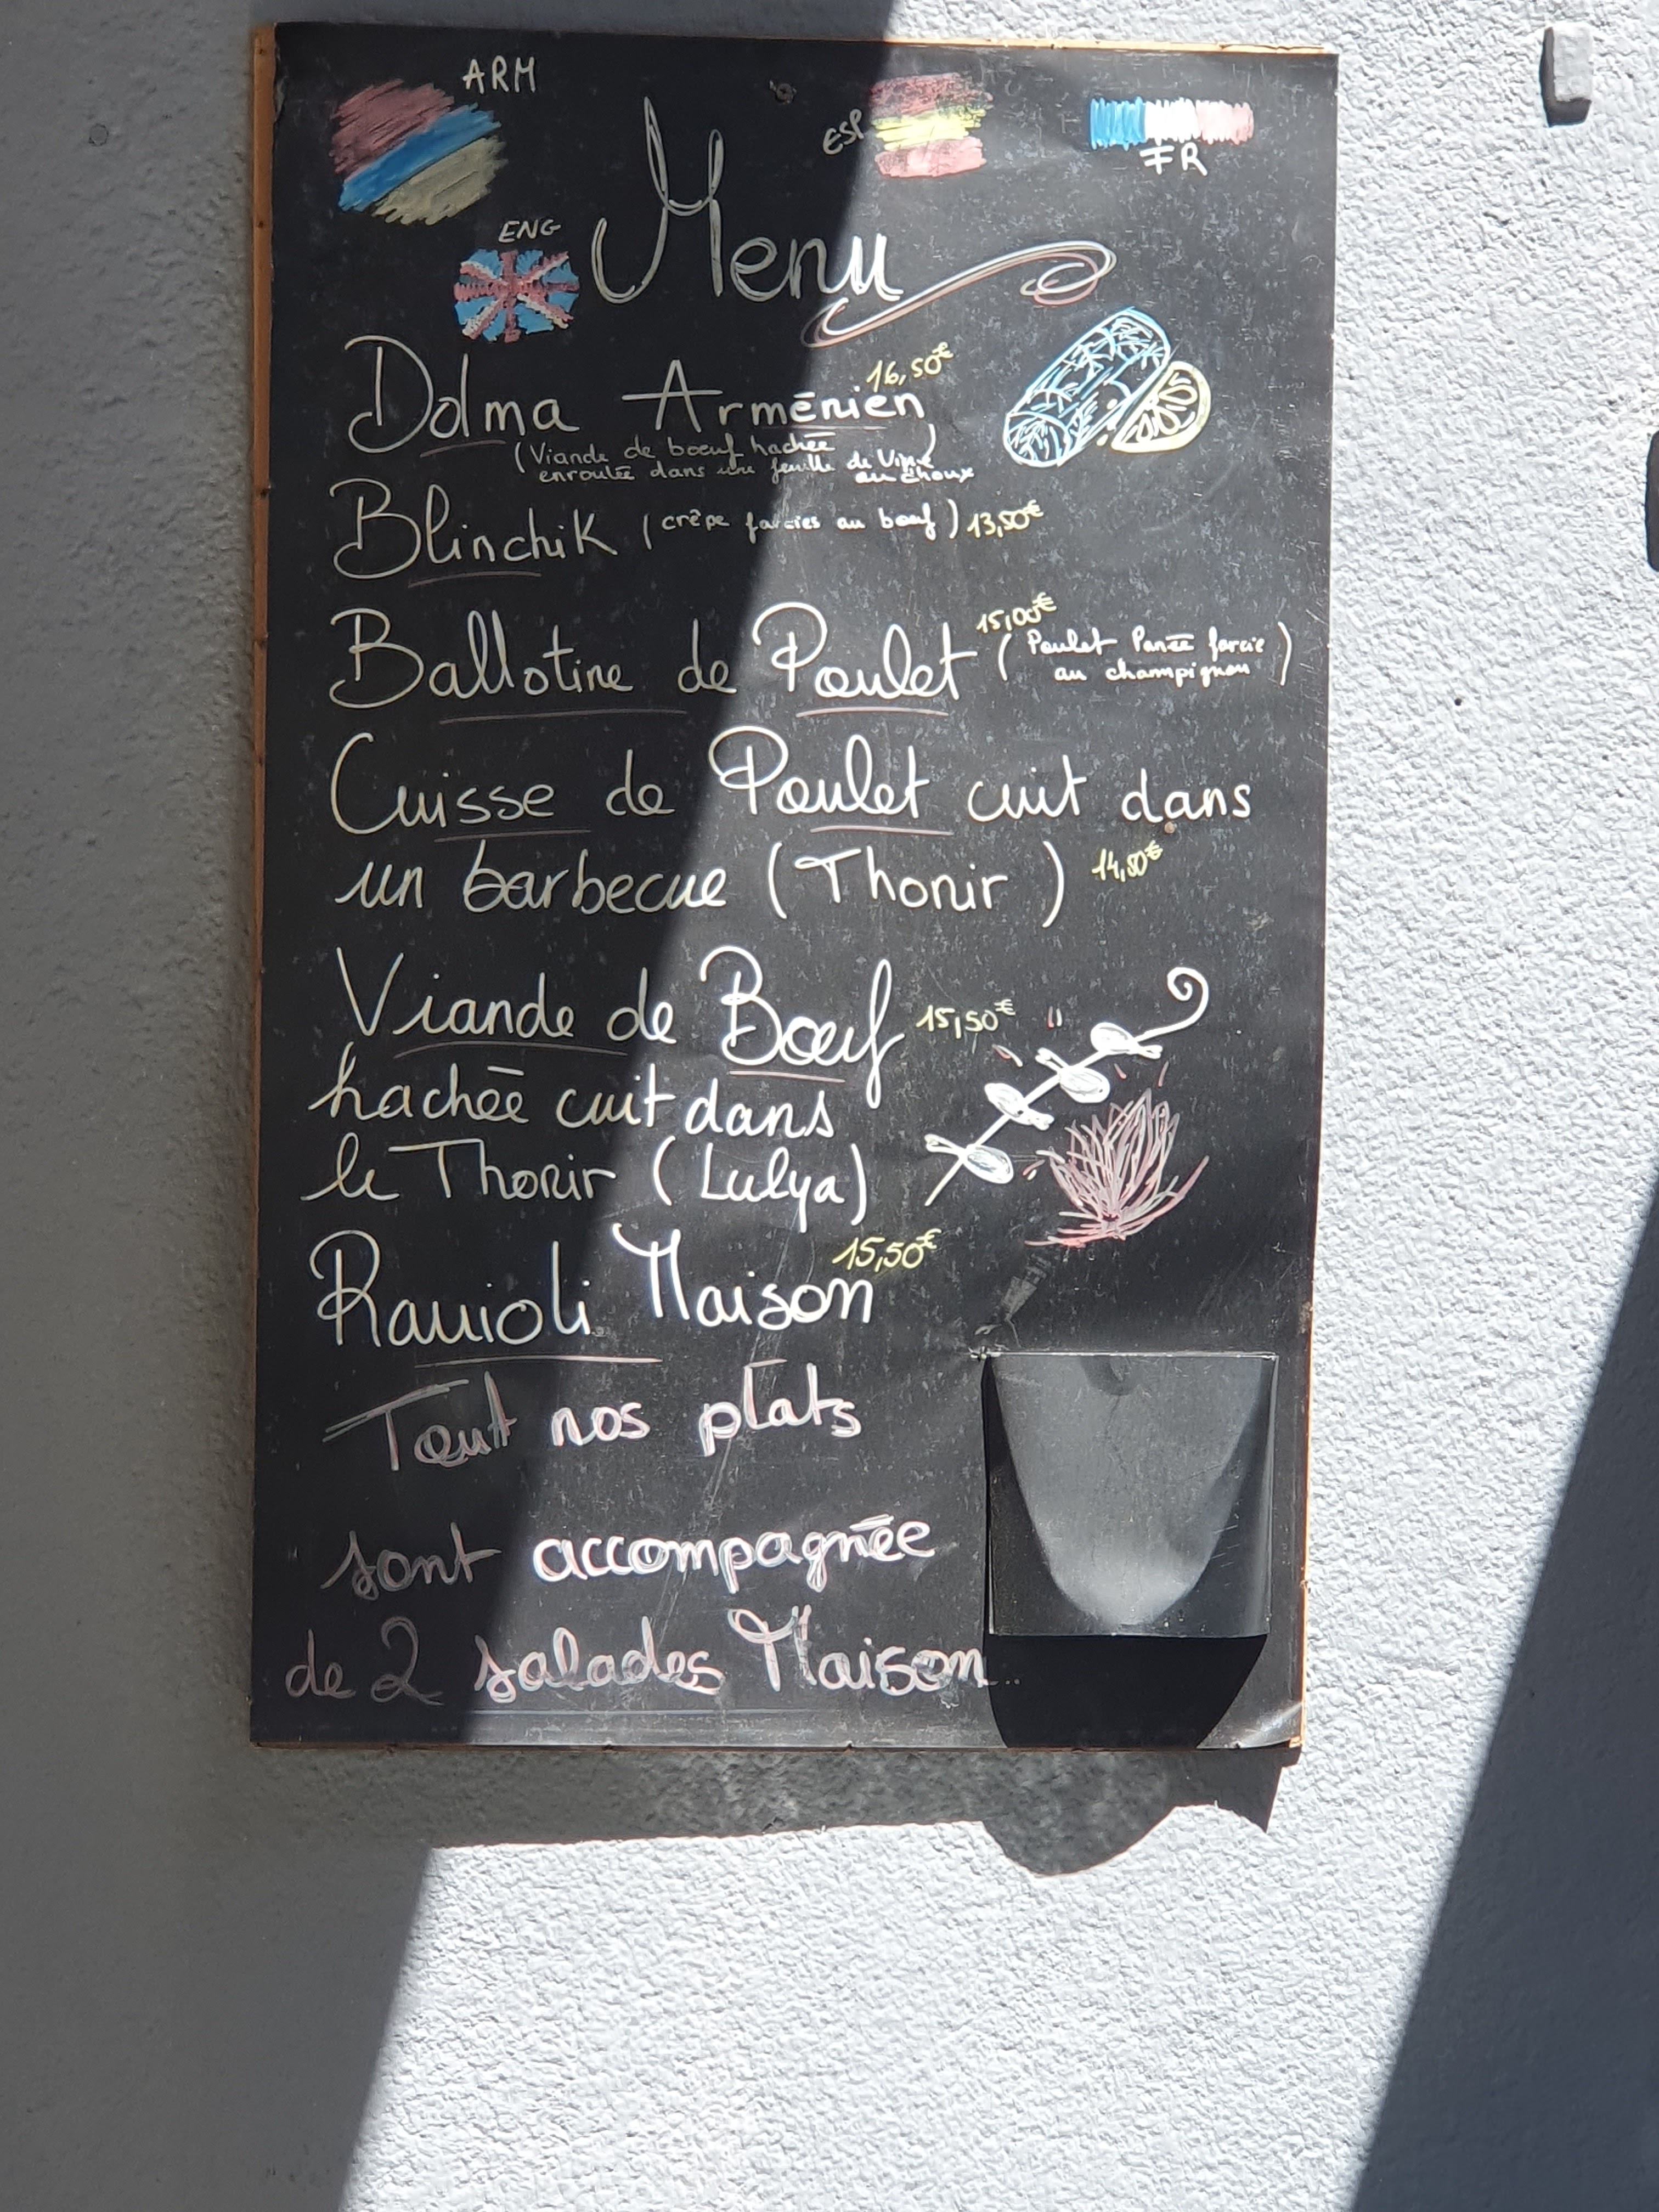 ARM
ESP
FR
ENG
Menu
16,50€
Dolma Arménien
(Viande de boeuf hachée)
enroulée dans une feuille de Vigne
ou choux
Blinchik (crêpe farcies au bœuf) 13,50€
15,00€
Ballotine de Poulet (Poulet Panée farcie)
au champignon
Cuisse de Poulet cuit dans
un barbecue (Thonir) 14,80€
Viande de Bœuf 15,50€
hachée cuit dans
le Thonir (Lulya)
15,50€
Ravioli Maison
Tout nos plats
sont accompagnée
de 2 salades Maison..